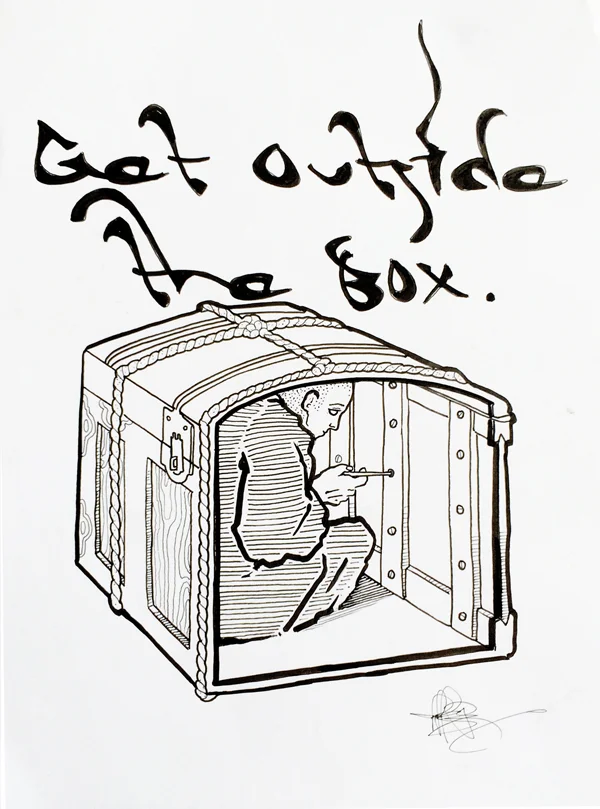 Get Outside
the Box.